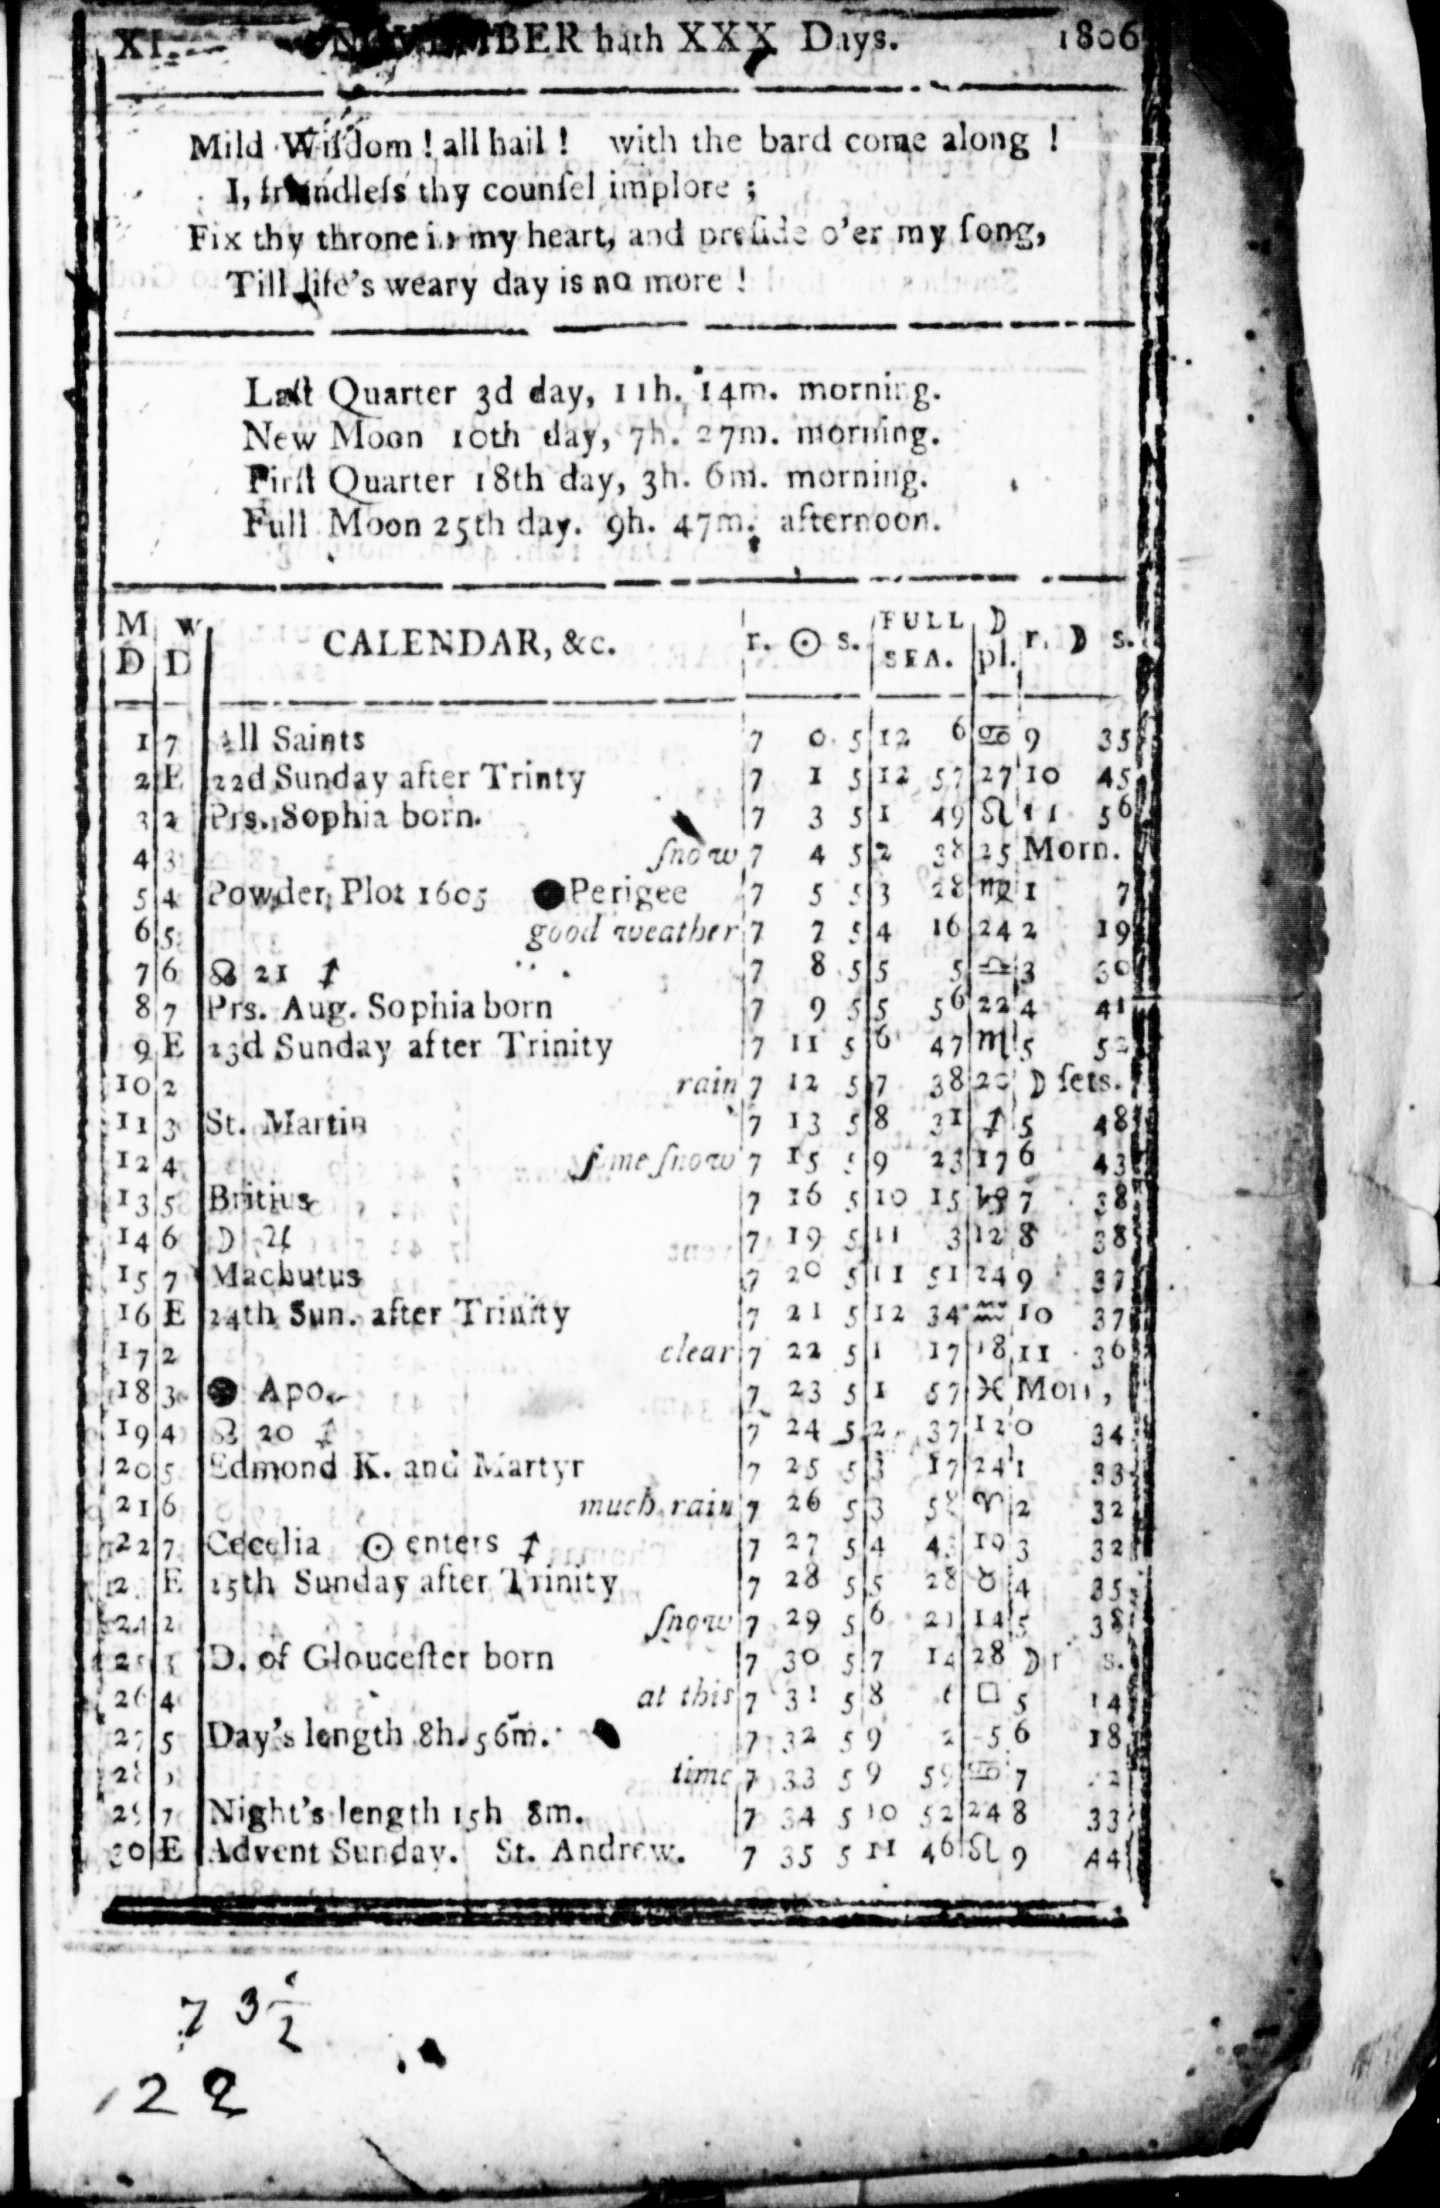 XI. NOVEMBER hath XXX Days. 1806
Mild Wiſdom ! all hail ! with the bard come along !
I, friendleſs thy counſel implore ;
Fix thy throne in my heart, and preſide o'er my ſong,
Till life's weary day is no more !
Laſt Quarter 3d day, 11h. 14m. morning.
New Moon 10th day, 7h. 27m. morning.
Firſt Quarter 18th day, 3h. 6m. morning.
Full Moon 25th day. 9h. 47m. afternoon.
M D W D CALENDAR, &c. r. ☉ s. FULL SEA. ☽ pl. r. ☽ s.
1 7 All Saints 7 0 5 12 6 ♋ 9 35
2 E 22d Sunday after Trinty 7 1 5 12 57 27 10 45
3 2 Prs. Sophia born. 7 3 5 1 49 ♌ 11 56
4 3 ſnow 7 4 5 2 38 25 Morn.
5 4 Powder Plot 1605 ●Perigee 7 5 5 3 28 ♍ 1 7
6 5 good weather 7 7 5 4 16 24 2 19
7 6 ☊ 21 ♐ 7 8 5 5 5 ♎ 3 30
8 7 Prs. Aug. Sophia born 7 9 5 5 56 22 4 41
9 E 23d Sunday after Trinity 7 11 5 6 47 ♏ 5 52
10 2 rain 7 12 5 7 38 20 ☽ ſets.
11 3 St. Martin 7 13 5 8 31 ♐ 5 48
12 4 ſome ſnow 7 15 5 9 23 17 6 43
13 5 Britius 7 16 5 10 15 ♑ 7 38
14 6 ☽ ♃ 7 19 5 11 3 12 8 38
15 7 Machutus 7 20 5 11 51 24 9 37
16 E 24th Sun. after Trinity 7 21 5 12 34 ♒ 10 37
17 2 clear 7 22 5 1 17 18 11 36
18 3 ● Apo. 7 23 5 1 57 ♓ Morn,
19 4 ☊ 20 ♐ 7 24 5 2 37 12 0 34
20 5 Edmond K. and Martyr 7 25 5 3 17 24 1 33
21 6 much rain 7 26 5 3 58 ♈ 2 32
22 7 Cecelia ☉ enters ♐ 7 27 5 4 43 19 3 32
2 E 25th Sunday after Trinity 7 28 5 5 28 ♉ 4 35
24 2 ſnow 7 29 5 6 21 14 5 38
25 3 D. of Glouceſter born 7 30 5 7 14 28 ☽ r s.
26 4 at this 7 31 5 8 □ 5 14
27 5 Day's length 8h. 56m. 7 32 5 9 2 5 6 18
28 time 7 33 5 9 59 ♋ 7
29 7 Night's length 15h 8m. 7 34 5 10 52 24 8 33
30 E Advent Sunday. St. Andrew. 7 35 5 11 46 ♌ 9 44
7 3 1/2
122